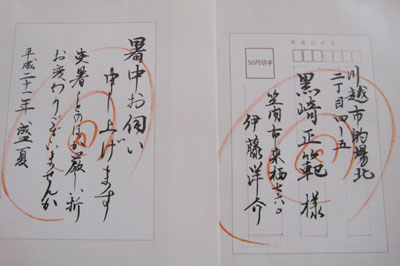 暑中お伺い
申し上げます
炎暑ことのほか厳しい折
お変わりございませんか
平成二十一年 盛夏
郵便はがき
50円切手
川越市的場北
二丁目四ー五
黒崎正範 様
笠間市来栖六八〇
伊藤洋介